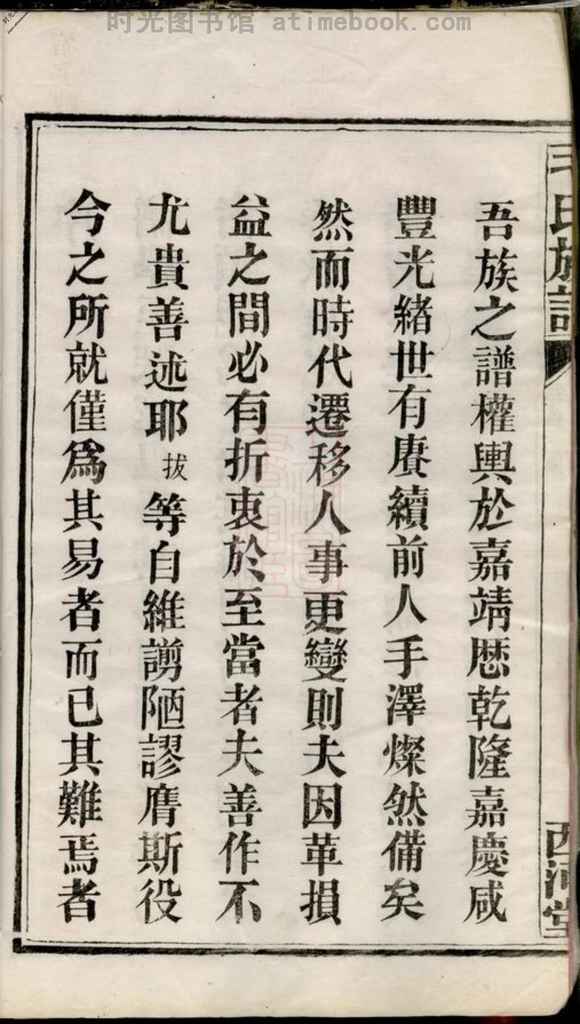 时光图书馆 atimebook.com
毛氏族譜
西河堂
吾族之譜權輿於嘉靖歷乾隆嘉慶咸
豐光緒世有賡續前人手澤燦然備矣
然而時代遷移人事更變則夫因革損
益之間必有折衷於至當者夫善作不
尤貴善述耶拔等自維謭陋謬膺斯役
今之所就僅爲其易者而已其難焉者